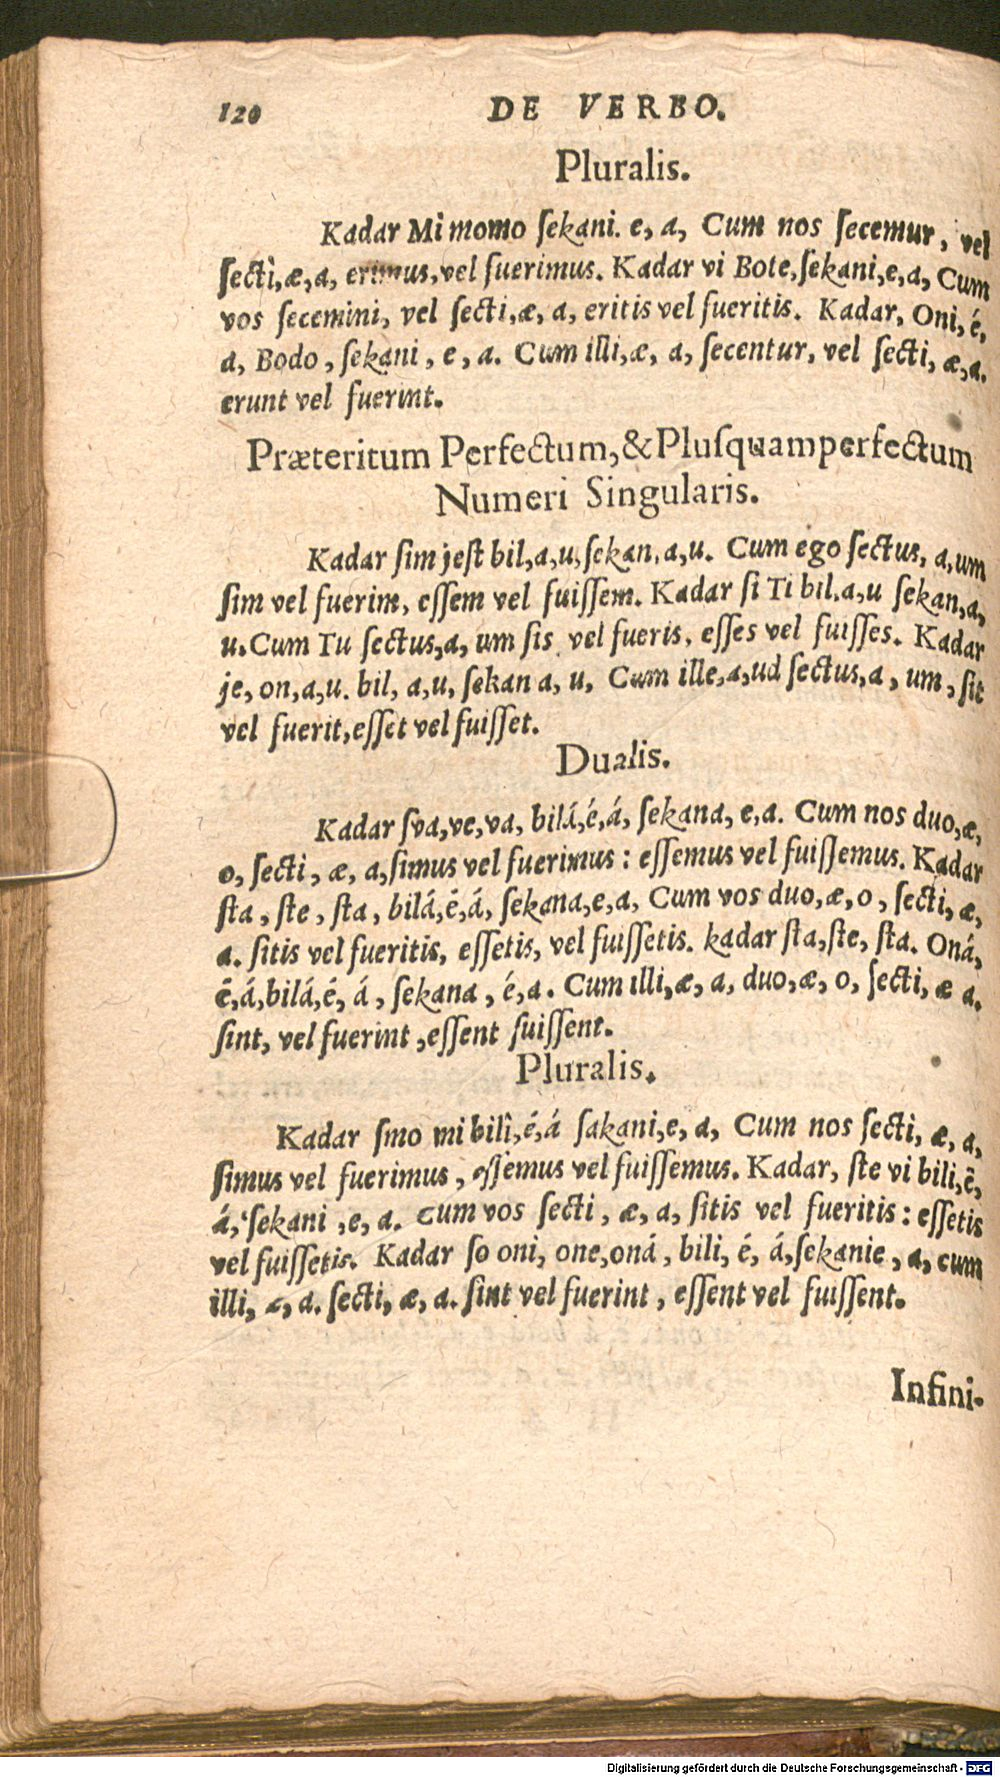 120 DE VERBO.
Pluralis.
Kadar Mi momo ſekani. e, a, Cum nos ſecemur, vel
ſecti,æ,a, erimus,vel fuerimus. Kadar vi Bote,ſekani,e,a, Cum
vos ſecemini, vel ſecti,æ, a, eritis vel fueritis. Kadar, Oni, é,
a, Bodo, ſekani, e, a. Cum illi,æ, a, ſecentur, vel ſecti, æ,a.
erunt vel fuerint.
Præteritum Perfectum,&Pluſquamperfectum
Numeri Singularis.
Kadar ſim jeſt bil,a,u,ſekan,a,u. Cum ego ſectus, a,um
ſim vel fuerim, eſſem vel fuiſſem. Kadar ſi Ti bil.a,u ſekan,a,
u.Cum Tu ſectus,a, um ſis vel fueris, eſſes vel fuiſſes. Kadar
je, on,a,u. bil, a,u, ſekan a, u, Cum ille,a,ud ſectus,a, um, ſit
vel fuerit,eſſet vel fuiſſet.
Dualis.
Kadar ſva,ve,va, bilá,é,á, ſekana, e,a. Cum nos duo,æ,
o, ſecti, æ, a,ſimus vel fuerimus: eſſemus vel fuiſſemus. Kadar
ſta, ſte, ſta, bilá,é,á, ſekana,e,a, Cum vos duo,æ,o, ſecti, æ,
a. ſitis vel fueritis, eſſetis, vel fuiſſetis. kadar ſta,ſte, ſta. Oná,
é,á,bilá,é, á, ſekana, é,a. Cum illi,æ, a, duo,æ, o, ſecti, æ a.
ſint, vel fuerint,eſſent fuiſſent.
Pluralis.
Kadar ſmo mi bilì,é,á ſakani,e, a, Cum nos ſecti, æ, a,
ſimus vel fuerimus, eſſemus vel fuiſſemus. Kadar, ſte vi bili,é,
á, ſekani,e, a. Cum vos ſecti, æ, a, ſitis vel fueritis: eſſetis
vel fuiſſetis. Kadar ſo oni, one,oná, bili, é, á,ſekanie, a, cum
illi, æ, a. ſecti, æ, a. ſint vel fuerint, eſſent vel fuiſſent.
Infini-
Digitalisierung gefördert durch die Deutsche Forschungsgemeinschaft - DFG